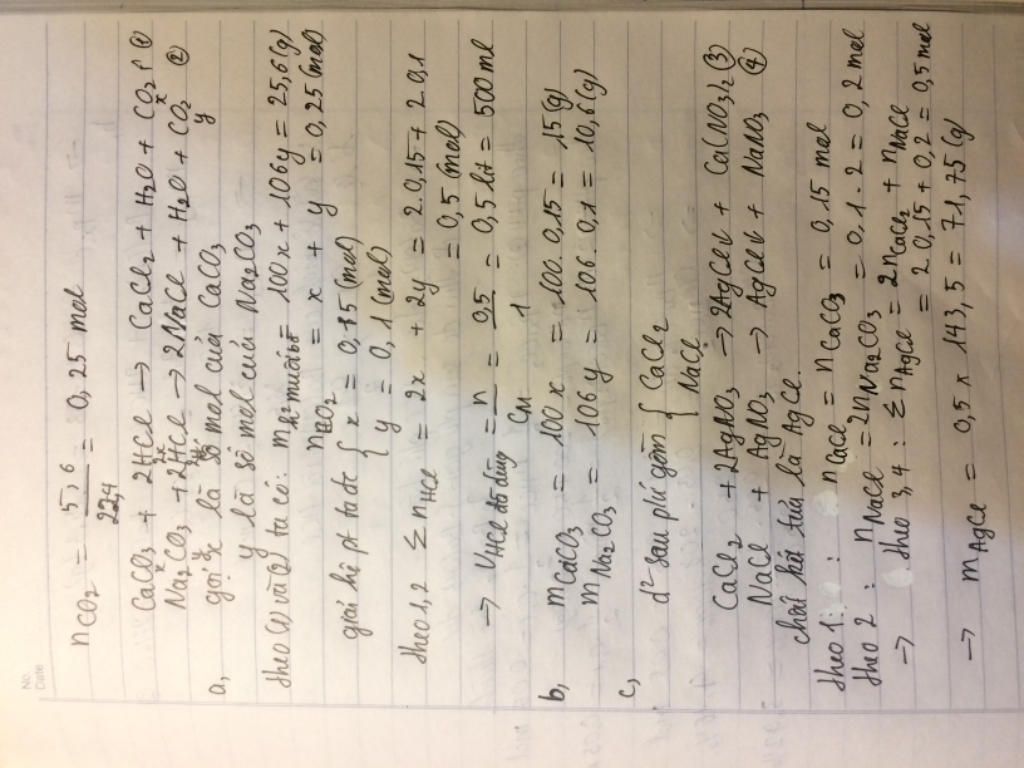 No.
Date
nCO₂ = 5,6/22,4 = 0,25 mol
CaCO₃ + 2HCl → CaCl₂ + H₂O + CO₂↑ (1)
x x
Na₂CO₃ + 2HCl → 2NaCl + H₂O + CO₂ (2)
y 2y y
a, gọi x là số mol của CaCO₃
y là số mol của Na₂CO₃
theo (1) và (2) ta có: m h² muối = 100x + 106y = 25,6 (g)
nCO₂ = x + y = 0,25 (mol)
giải hệ pt ta đc { x = 0,15 (mol)
y = 0,1 (mol)
theo 1,2 Σ nHCl = 2x + 2y = 2.0,15 + 2.0,1
= 0,5 (mol)
→ VHCl đã dùng = n/CM = 0,5/1 = 0,5 lít = 500 ml
b, mCaCO₃ = 100x = 100.0,15 = 15 (g)
mNa₂CO₃ = 106y = 106.0,1 = 10,6 (g)
c, d² sau phứ gồm { CaCl₂
NaCl
CaCl₂ + 2AgNO₃ → 2AgCl↓ + Ca(NO₃)₂ (3)
NaCl + AgNO₃ → AgCl↓ + NaNO₃ (4)
chất kết tủa là AgCl.
theo 1: nCaCl₂ = nCaCO₃ = 0,15 mol
theo 2: nNaCl = 2nNa₂CO₃ = 0,1.2 = 0,2 mol
→ theo 3,4: Σ nAgCl = 2nCaCl₂ + nNaCl
= 2.0,15 + 0,2 = 0,5 mol
→ mAgCl = 0,5 x 143,5 = 71,75 (g)